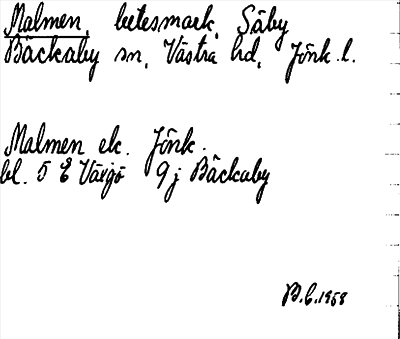 Malmen, betesmark, Säby
Bäckaby sn, Västra hd, Jönk. l.
Malmen ek. Jönk.
bl. 5 E Växjö 9j Bäckaby
B.C. 1958